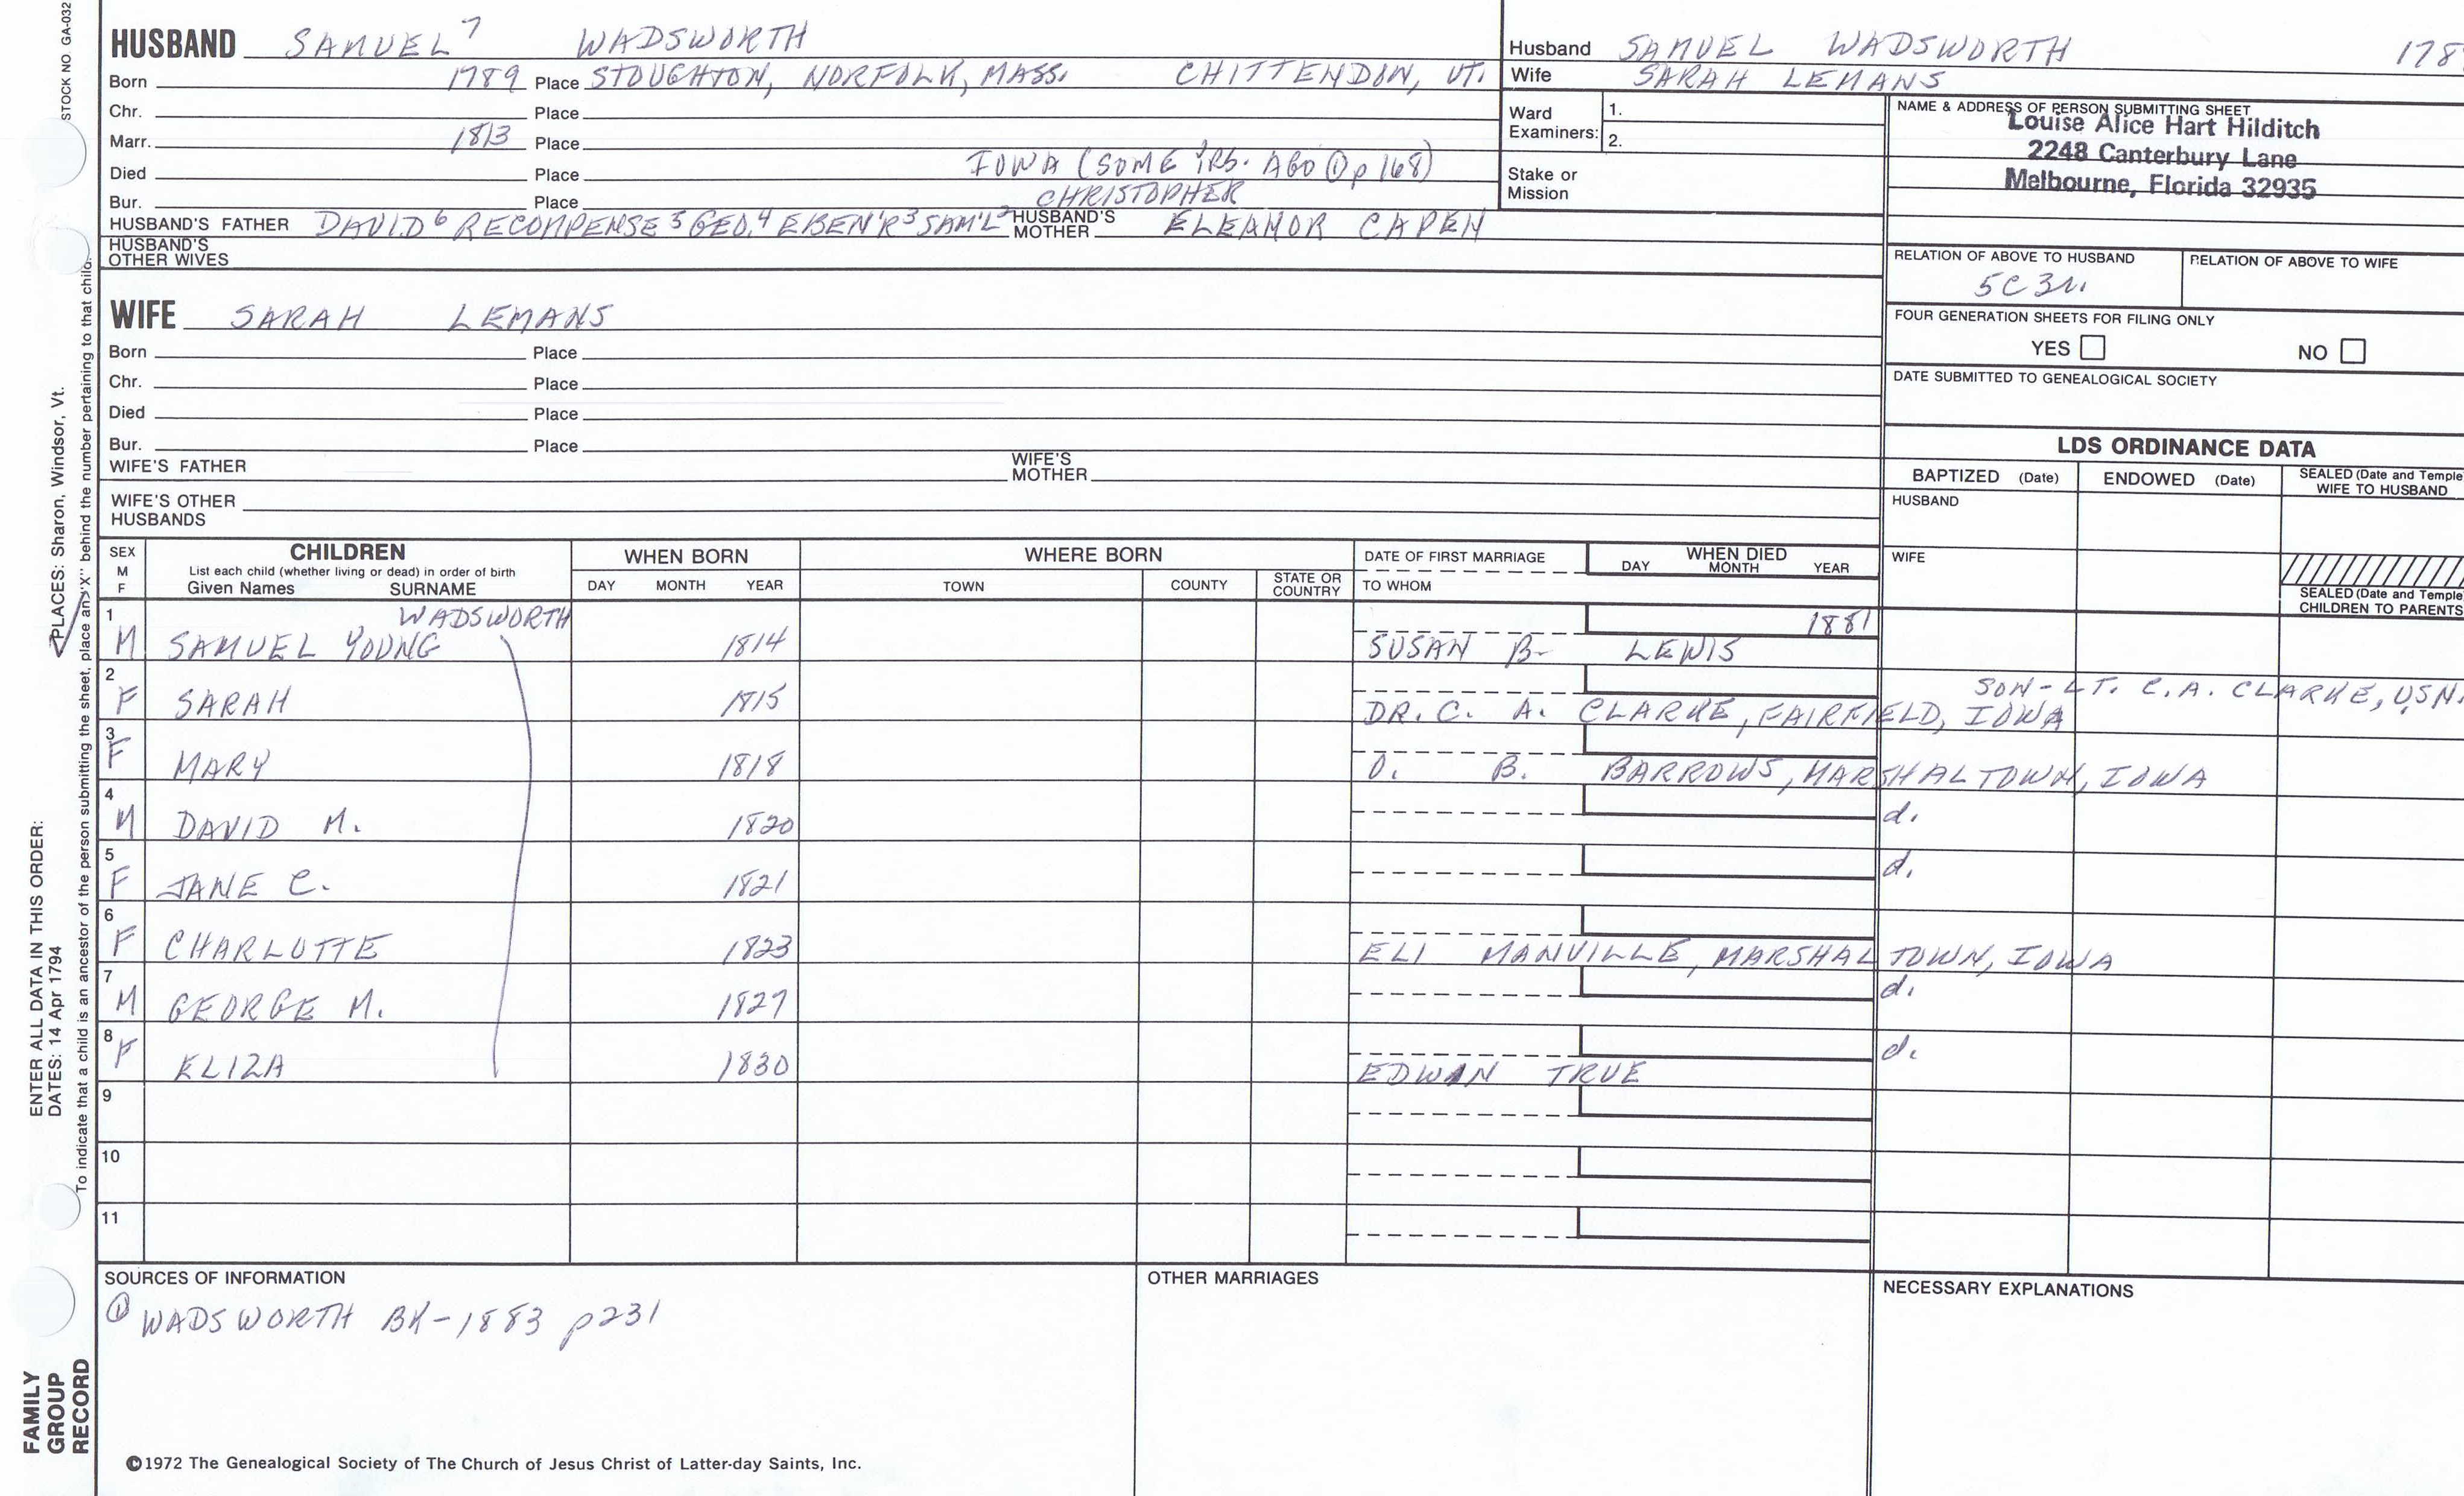 STOCK NO GA-032
HUSBAND SAMUEL⁷ WADSWORTH
Born 1789 Place STOUGHTON, NORFOLK, MASS. CHITTENDON, VT.
Chr. Place
Marr. 1813 Place
Died Place IOWA (SOME YRS. AGO ① p 168)
Bur. Place CHRISTOPHER
HUSBAND'S FATHER DAVID⁶ RECOMPENSE⁵ GEO.⁴ EBEN'R³ SAM'L² HUSBAND'S MOTHER ELEANOR CAPEN
HUSBAND'S OTHER WIVES
WIFE SARAH LEMANS
Born Place
Chr. Place
Died Place
Bur. Place
WIFE'S FATHER WIFE'S MOTHER
WIFE'S OTHER HUSBANDS
Husband SAMUEL WADSWORTH 178
Wife SARAH LEMANS
Ward Examiners: 1.
2.
Stake or Mission
NAME & ADDRESS OF PERSON SUBMITTING SHEET
Louise Alice Hart Hilditch
2248 Canterbury Lane
Melbourne, Florida 32935
RELATION OF ABOVE TO HUSBAND RELATION OF ABOVE TO WIFE
5C 3r.
FOUR GENERATION SHEETS FOR FILING ONLY
YES NO
DATE SUBMITTED TO GENEALOGICAL SOCIETY
LDS ORDINANCE DATA
BAPTIZED (Date) ENDOWED (Date) SEALED (Date and Temple
WIFE TO HUSBAND
HUSBAND
WIFE
SEALED (Date and Temple
CHILDREN TO PARENTS
SEX M F CHILDREN WHEN BORN WHERE BORN DATE OF FIRST MARRIAGE WHEN DIED
List each child (whether living or dead) in order of birth
Given Names SURNAME DAY MONTH YEAR TOWN COUNTY STATE OR COUNTRY TO WHOM DAY MONTH YEAR
1 WADSWORTH 1881
M SAMUEL YOUNG 1814 SUSAN B- LEWIS
2 SON - LT. C.A. CLARKE, USN.
F SARAH 1815 DR. C. A. CLARKE, FAIRFIELD, IOWA
3
F MARY 1818 O. B. BARROWS, MARSHALTOWN, IOWA
4
M DAVID M. 1820 d.
5
F JANE C. 1821 d.
6
F CHARLOTTE 1823 ELI MANVILLE, MARSHALTOWN, IOWA
7
M GEORGE M. 1827 d.
8
F ELIZA 1830 EDWIN TRUE d.
9
10
11
SOURCES OF INFORMATION OTHER MARRIAGES NECESSARY EXPLANATIONS
① WADSWORTH BK-1883 p231
©1972 The Genealogical Society of The Church of Jesus Christ of Latter-day Saints, Inc.
FAMILY
GROUP
RECORD
ENTER ALL DATA IN THIS ORDER:
DATES: 14 Apr 1794 PLACES: Sharon, Windsor, Vt.
To indicate that a child is an ancestor of the person submitting the sheet, place an "X" behind the number pertaining to that child.